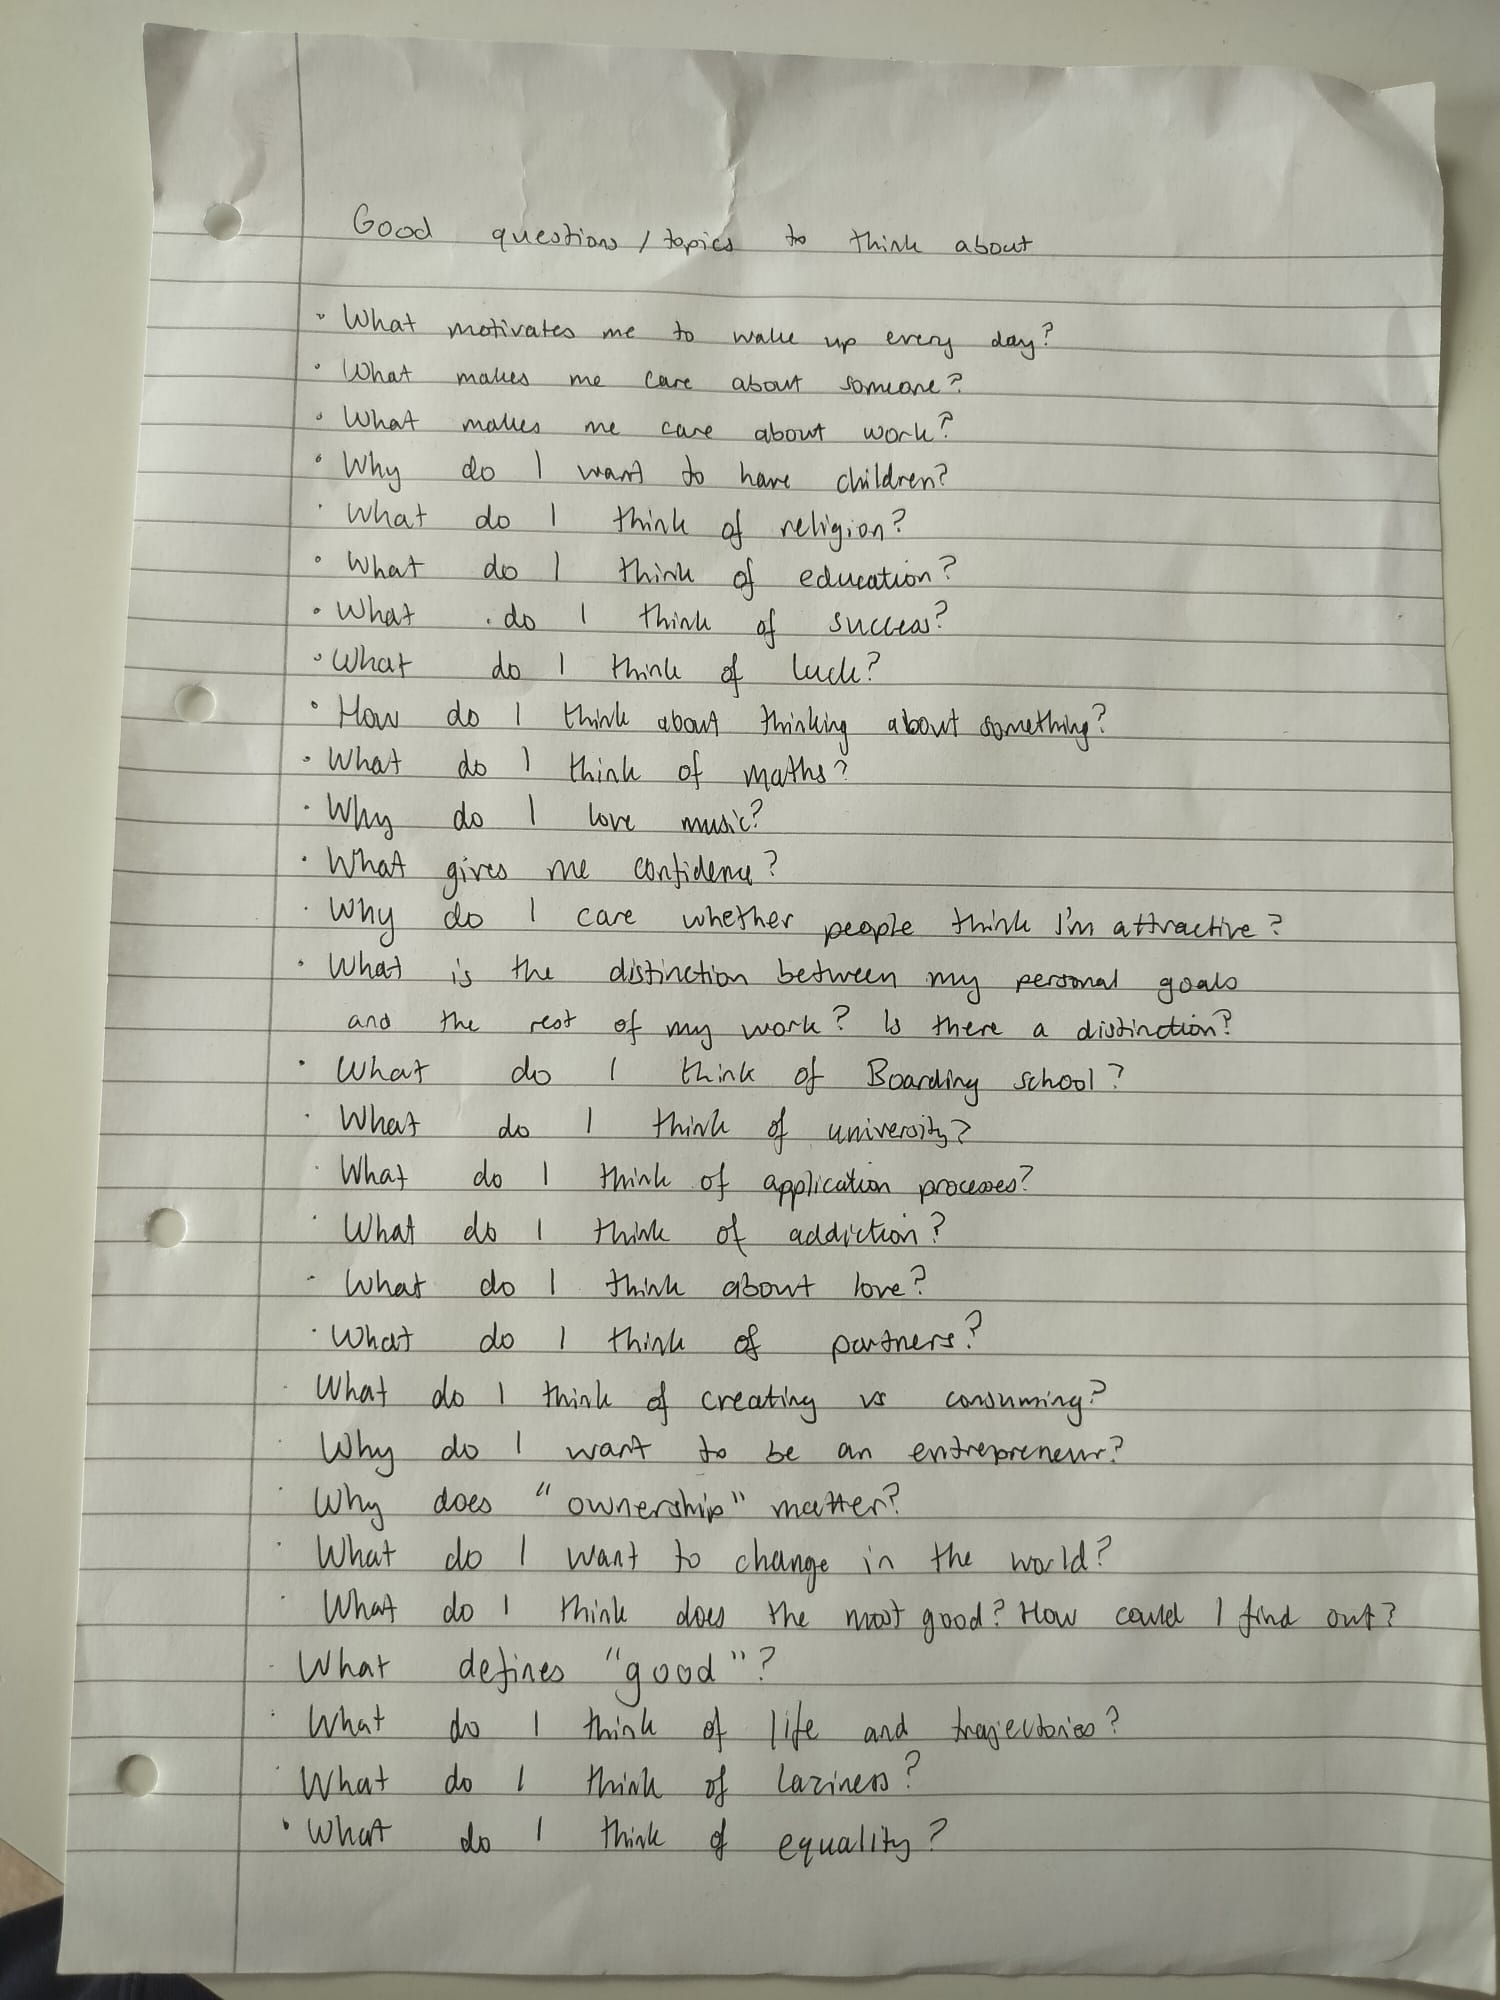 Good questions / topics to think about
• What motivates me to wake up every day?
• What makes me care about someone?
• What makes me care about work?
• Why do I want to have children?
• What do I think of religion?
• What do I think of education?
• What do I think of success?
• What do I think of luck?
• How do I think about thinking about something?
• What do I think of maths?
• Why do I love music?
• What gives me confidence?
• Why do I care whether people think I'm attractive?
• What is the distinction between my personal goals
and the rest of my work? Is there a distinction?
• What do I think of Boarding school?
• What do I think of university?
• What do I think of application processes?
• What do I think of addiction?
• What do I think about love?
• What do I think of partners?
• What do I think of creating vs consuming?
• Why do I want to be an entrepreneur?
• Why does "ownership" matter?
• What do I want to change in the world?
• What do I think does the most good? How could I find out?
• What defines "good"?
• What do I think of life and trajectories?
• What do I think of laziness?
• What do I think of equality?